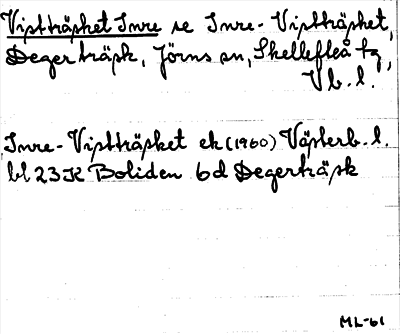 Vistträsket Inre se Inre-Vistträsket,
Degerträsk, Jörns sn, Skellefteå tg,
Vb.l.
Inre-Vistträsket ek (1960) Västerb.l.
bl 23 K Boliden 6d Degerträsk
ML-61